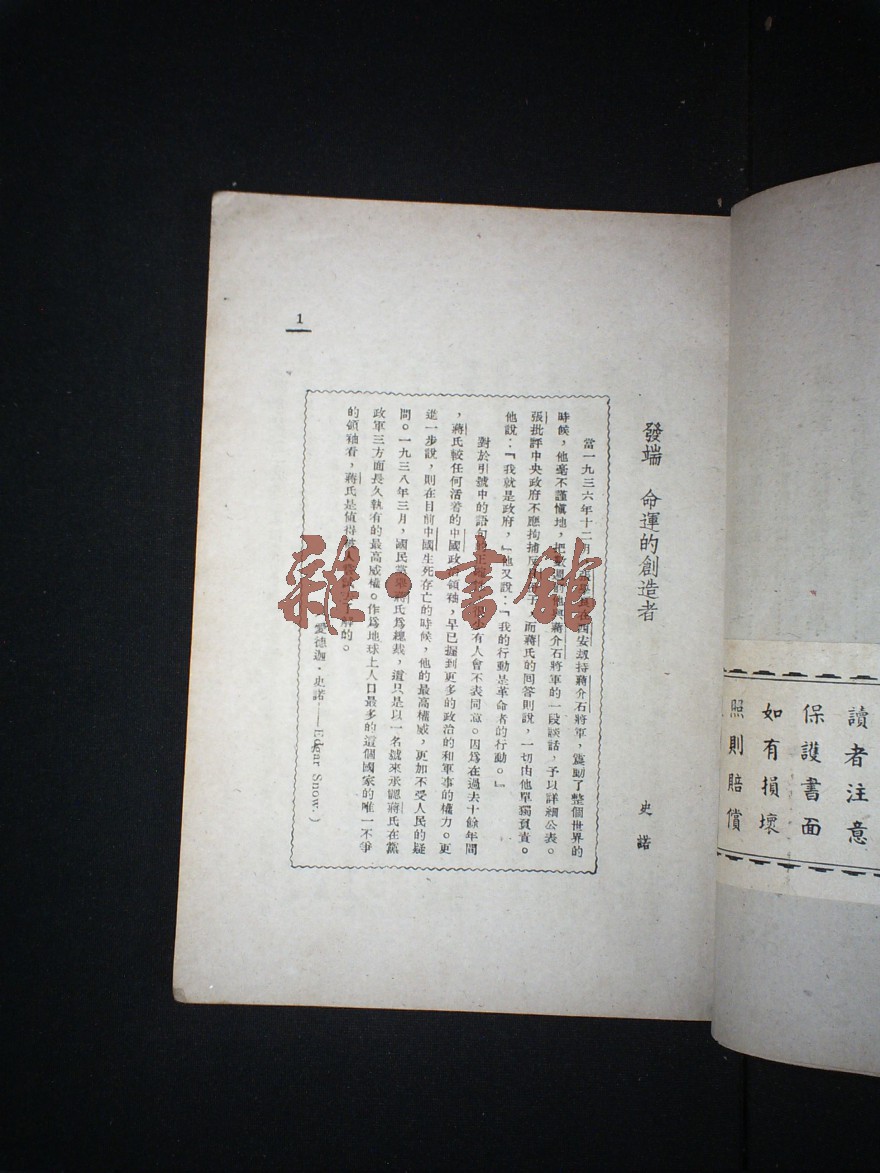 讀者注意
保護書面
如有損壞
照則賠償
發端 命運的創造者
史諾
當一九三六年十二月西安刼持蔣介石將軍，震動了整個世界的
時候，他毫不謹愼地，把蔣介石將軍的一段談話，予以詳細公表。
張批評中央政府不應拘捕而蔣氏的回答則說，一切由他單獨負責。
他說：『我就是政府，』他又說：『我的行動是革命者的行動。』
對於引號中的語句有人會不表同意。因爲在過去十餘年間
，蔣氏較任何活着的中國政治領袖，早已握到更多的政治的和軍事的權力。更
進一步說，則在目前中國生死存亡的時候，他的最高權威，更加不受人民的疑
問。一九三八年三月，國民黨蔣氏爲總裁，這只是以一名號來承認蔣氏在黨
政軍三方面長久執有的最高威權。作爲地球上人口最多的這個國家的唯一不爭
的領袖看，蔣氏是值得解的。
愛德迦·史諾——Edgar Snow.）
1
雜·書館